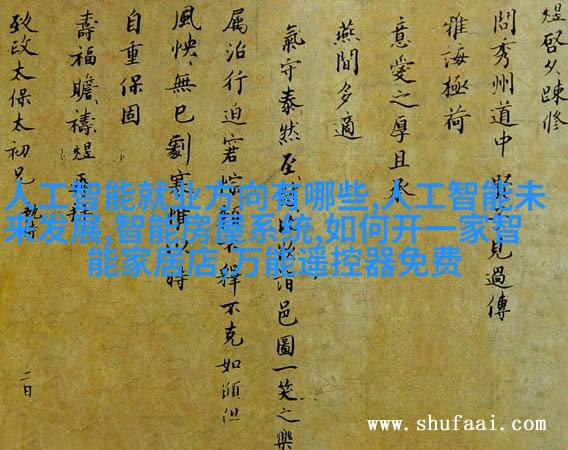 煜啓久踈修
問秀州道中 見過傳
雅海極荷
意愛之厚且承
燕閒多適
氣守泰然至 邑圖一笑之樂
属治行迫窘 不釋不克如 但
風怏無已劇寒惟以時
自重保固
壽福瞻禱煜再拜
致政太保太初兄
二日
人工智能就业方向有哪些,人工智能未
来发展,智能房屋系统,如何开一家智
能家居店,万能遥控器免费
www.shufaai.com